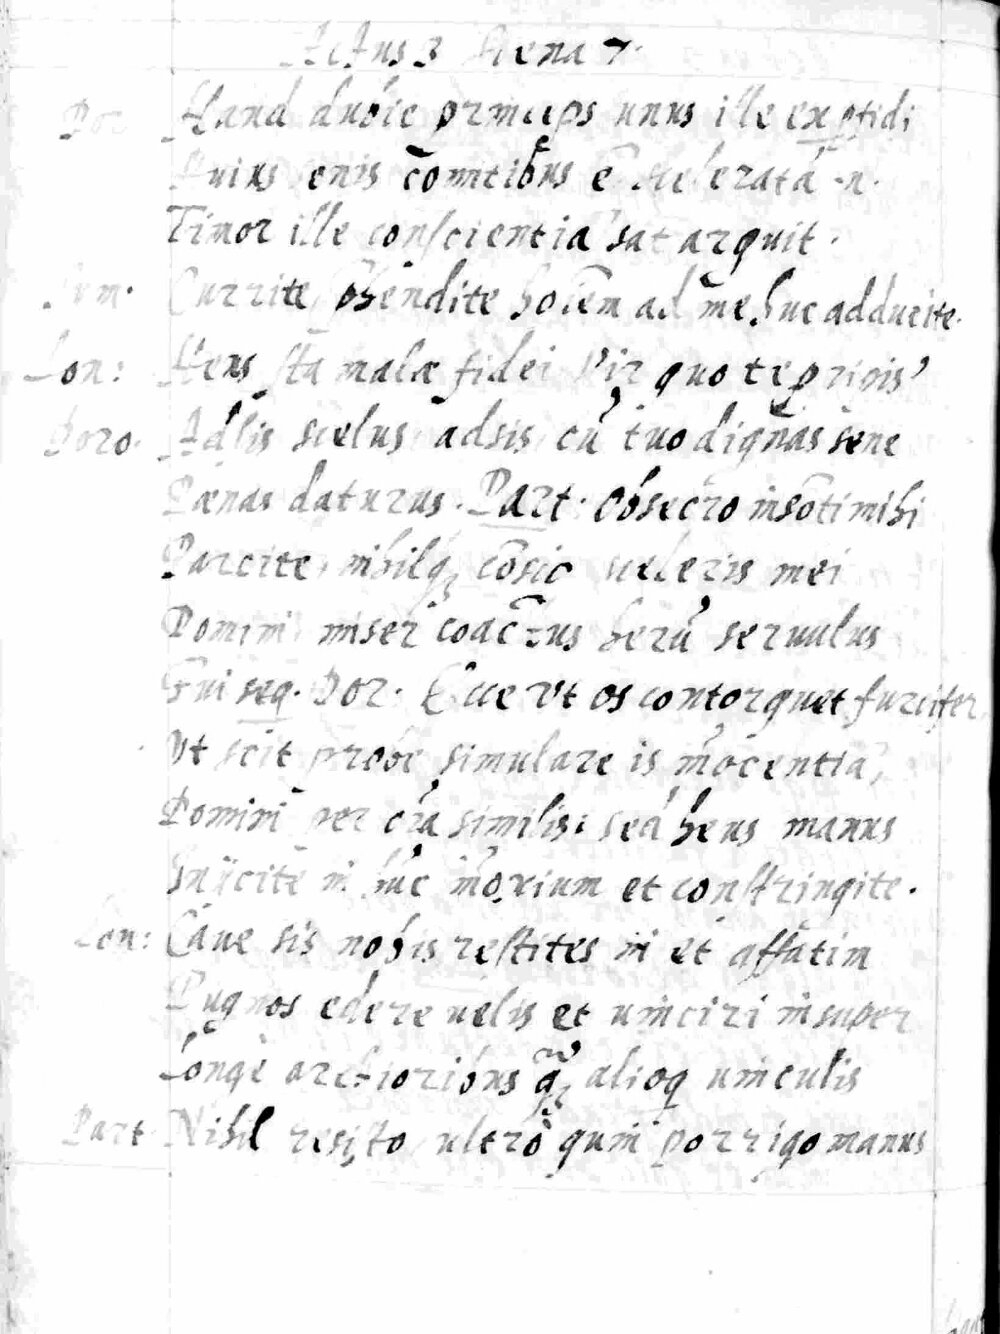 Actus 3 Scena 7.
Haud dubie princeps unus ille exptidi
enis cōmitibus ē scelerata n.
Timor ille conscientia sat arquit.
Currite, ad me huc adducite.
Lon: Heus sta malæ fidei vir quo te pripis?
Doro. Adsis scelus, adsis, cū tuo dignas sene
Pænas daturus. Part. obsecro insōti mihi
Parcite, nihilq; cōscio sceleris mei
Domini miser coactus herū seruulus
seq. Dor. Ecce vt os contorquet furcifer
Vt scit probe simulare is īnocentiā,
Domini per similis: sed heus manus
Iniicite in hūc et constringite.
Lon: Caue sis nobis restites ni et affatim
Pugnos edere uelis et uinciri insuper
Longè arctioribus q̄; alioq uinculis
Part. Nihil resisto, ultrò quin porrigo manus